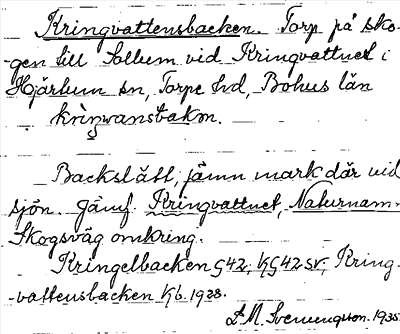 Kringvattensbacken. Torp på sko-
-gen till Sollum vid Kringvattnet i
Hjärtum sn, Torpe hd, Bohus län
krìŋvansbakən.
Backslätt, jämn mark där vid
sjön. Jämf. Kringvattnet, Naturnamn
Skogsväg omkring.
Kringelbacken G42, HG42 sv, Kring-
-vattensbacken Hb. 1928.
1935